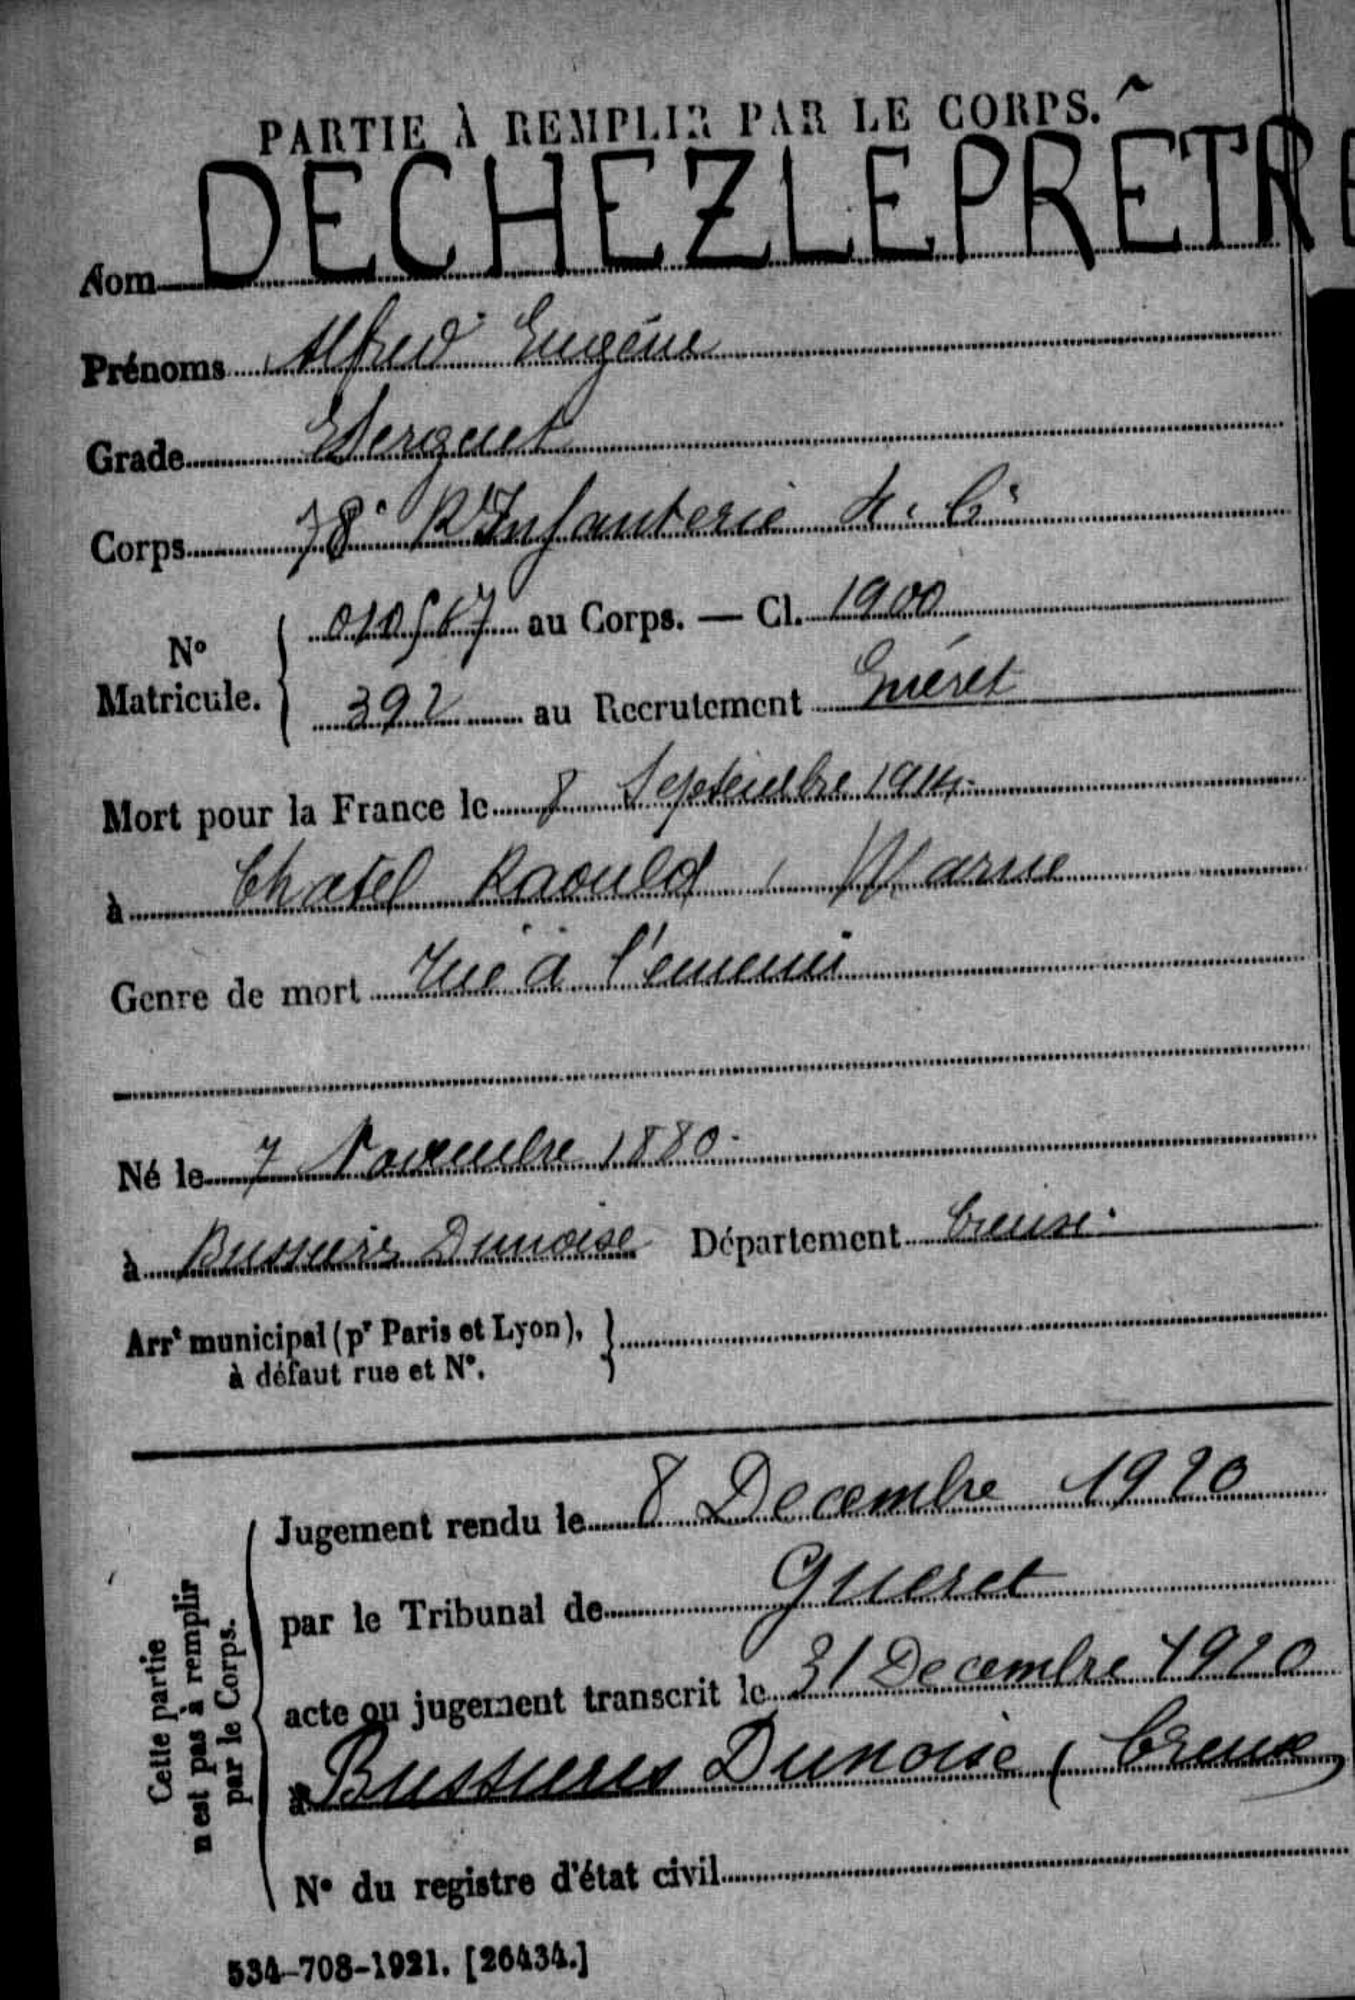 PARTIE À REMPLIR PAR LE CORPS.
Nom DECHEZLEPRETRE
Prénoms Alfred Eugène
Grade Sergent
Corps 78e Rt Infanterie 4e Cie
N° Matricule. 010567 au Corps. — Cl. 1900
392 au Recrutement Guéret
Mort pour la France le 8 Septembre 1914
à Chatel Raould, Marne
Genre de mort Tué à l'ennemi
Né le 7 Novembre 1880
à Bussière Dunoise Département Creuse
Arrt municipal (pr Paris et Lyon),
à défaut rue et N°.
Cette partie
n'est pas à remplir
par le Corps.
Jugement rendu le 8 Decembre 1920
par le Tribunal de Gueret
acte ou jugement transcrit le 31 Decembre 1920
à Bussieres Dunoise (Creuse)
N° du registre d'état civil
534-708-1921. [26434.]